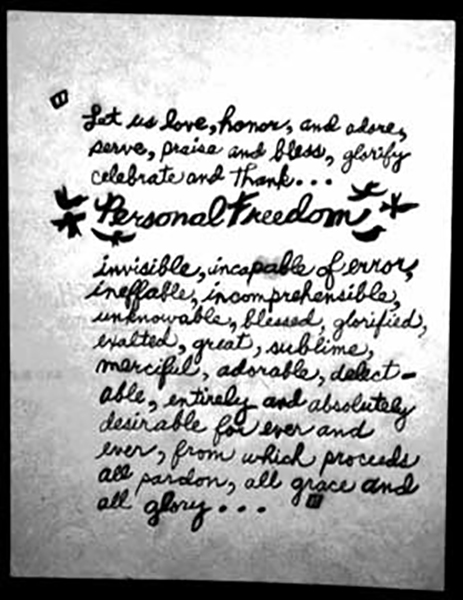 Let us love, honor, and adore,
serve, praise and bless, glorify
celebrate and thank...
Personal Freedom
invisible, incapable of error,
ineffable, incomprehensible,
unknowable, blessed, glorified,
exalted, great, sublime,
merciful, adorable, delect-
able, entirely and absolutely
desirable for ever and
ever, from which proceeds
all pardon, all grace and
all glory...